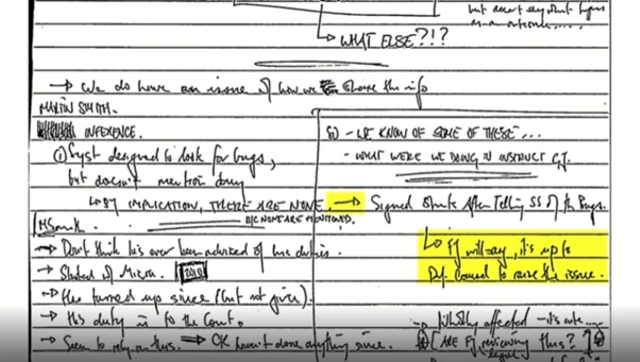 but doesn't say about bugs
as an outcome....
↳ WHAT ELSE?!?
→ We do have an issue of how we share the info
MARTIN SMITH.
INFERENCE.
① Syst designed to look for bugs,
but doesn't mention any
↳ BY IMPLICATION, THERE ARE NONE.
B/C NONE ARE MENTIONED.
- WE KNOW OF SOME OF THESE...
- WHAT WERE WE DOING TO INSTRUCT GJ.
→ Signed after Telling SS of the Bugs.
↳ FJ will say, it's up to
Def Counsel to raise the issue.
MSmith
→ Don't think he's ever been advised of his duties.
→ Started at Misra. 2010
→ Has turned up since (but not given).
→ His duty is to the Court.
→ Seem to rely on this. ⇒ CK haven't done anything since.
affected - it's
ARE FJ reviewing this?